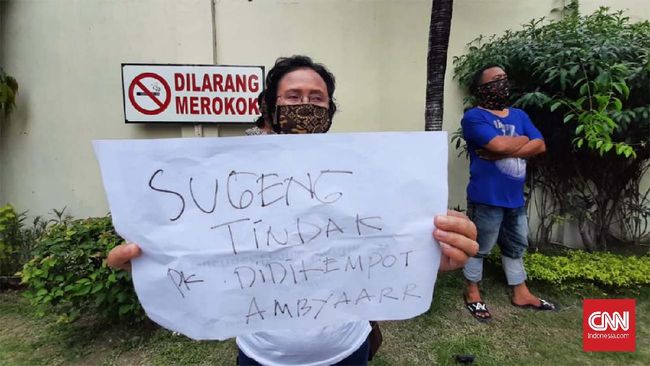 DILARANG
MEROKOK
SUGENG
TINDAK
PK. DIDI KEMPOT
AMBYAARR
CNN
Indonesia.com